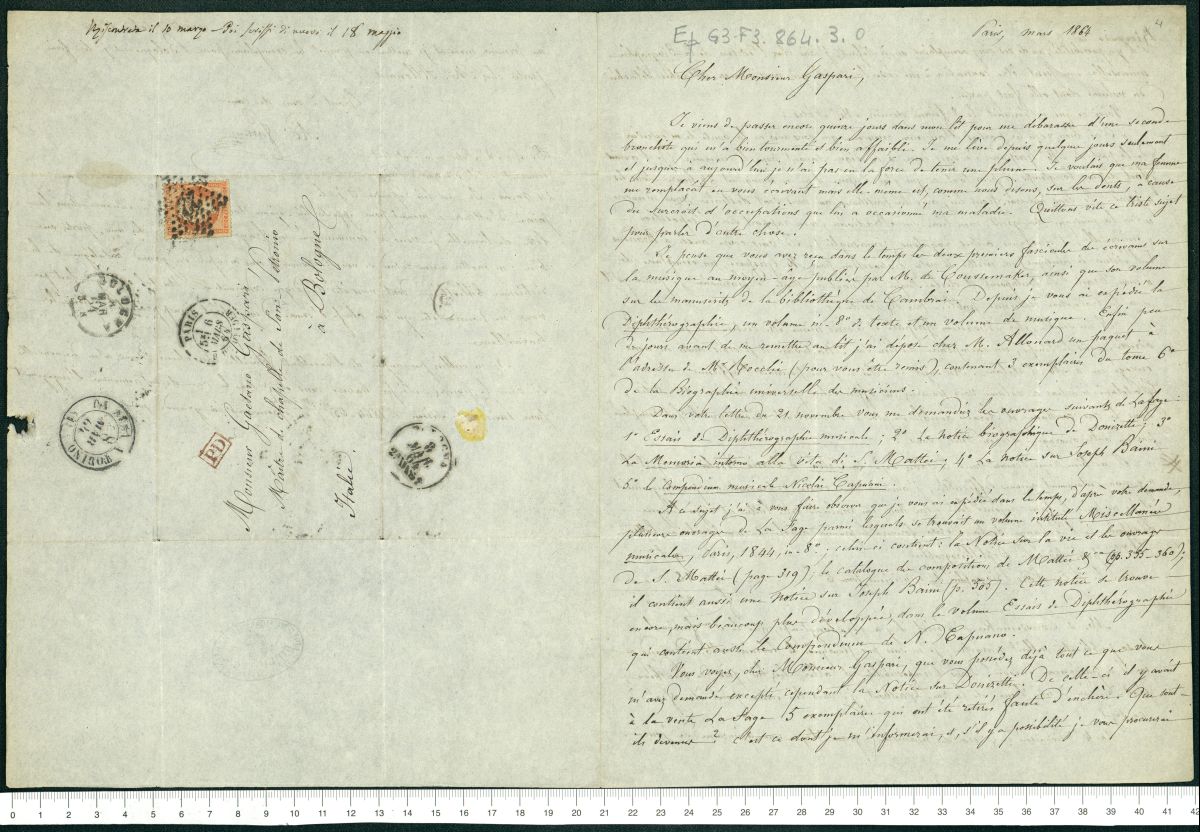 Riscontrata il 10 marzo - Poi scrissi di nuovo il 18 maggio
Monsieur Gaetano Gaspari
Maître de chapelle de San Petronio
à Bologne
Italie.
PD
PARIS
BOLOGNA
TORINO
Ep. G3-F3. 864. 3. 0
4
Paris, mars 1864
Cher Monsieur Gaspari,
Je viens de passer encore quinze jours dans mon lit pour me débarasser d'une seconde
bronchite qui m'a bien tourmenté et bien affaibli. Je me lève depuis quelque jours seulement
et jusqu'à aujourd'hui je n'ai pas eu la force de tenir une plume. Je voulais que ma femme
me remplaçât en vous écrivant mais elle même est, comme nous disons, sur les dents, à cause
du surcroit d'occupations que lui a occasionné ma maladie. Quittons vite ce triste sujet
pour parler d'autre chose.
Je pense que vous avez reçu dans le temps les deux premiers fascicules des écrivains sur
la musique au moyen-âge publié par M. de Coussemaker, ainsi que son volume
sur les manuscrits de la bibliothèque de Cambrai. Depuis je vous ai expédié la
Diphthérographie, un volume in-8° de texte et un volume de musique. Enfin peu
de jours avant de me remettre au lit j'ai déposé chez M. Allouard un paquet à
l'adresse de Mr. Rocchi (pour vous être remis), contenant 3 exemplaires du tome 6e
de la Biographie universelle des musiciens.
Dans votre lettre du 21 novembre vous me demandez les ouvrages suivants de Lafage:
1° Essais de Diphthérographie musicale; 2° La notice biographique de Donizetti; 3°
La Memoria intorno alla vita di S. Mattei; 4° La notice sur Joseph Baini
5° le compendium musicale Nicolai Capuani.
A ce sujet j'ai à vous faire observer que je vous ai expédié dans le temps, d'après votre demande,
plusieurs ouvrages de La Fage parmi lesquels se trouvait un volume intitulé Miscellanées
musicales, Paris, 1844, in-8°, celui-ci contient: la Notice sur la vie et les ouvrages
de S. Mattei (page 319); le catalogue des compositions de Mattei &ca (pp. 355-360);
il contient aussi une notice sur Joseph Baini (p. 505). Cette notice se trouve
encore, mais beaucoup plus développée, dans le volume Essais de Diphthérographie
qui contient aussi le Compendium de N. Capuano.
Vous voyez, cher Monsieur Gaspari, que vous possédez déjà tout ce que vous
m'avez demandé excepté cependant la Notice sur Donizetti. De celle-ci il y avait
à la vente La Fage 5 exemplaires qui ont été retirés faute d'enchère. Que sont-
ils devenus? c'est ce dont je m'informerai, et, s'il y a possibilité je vous procurerai